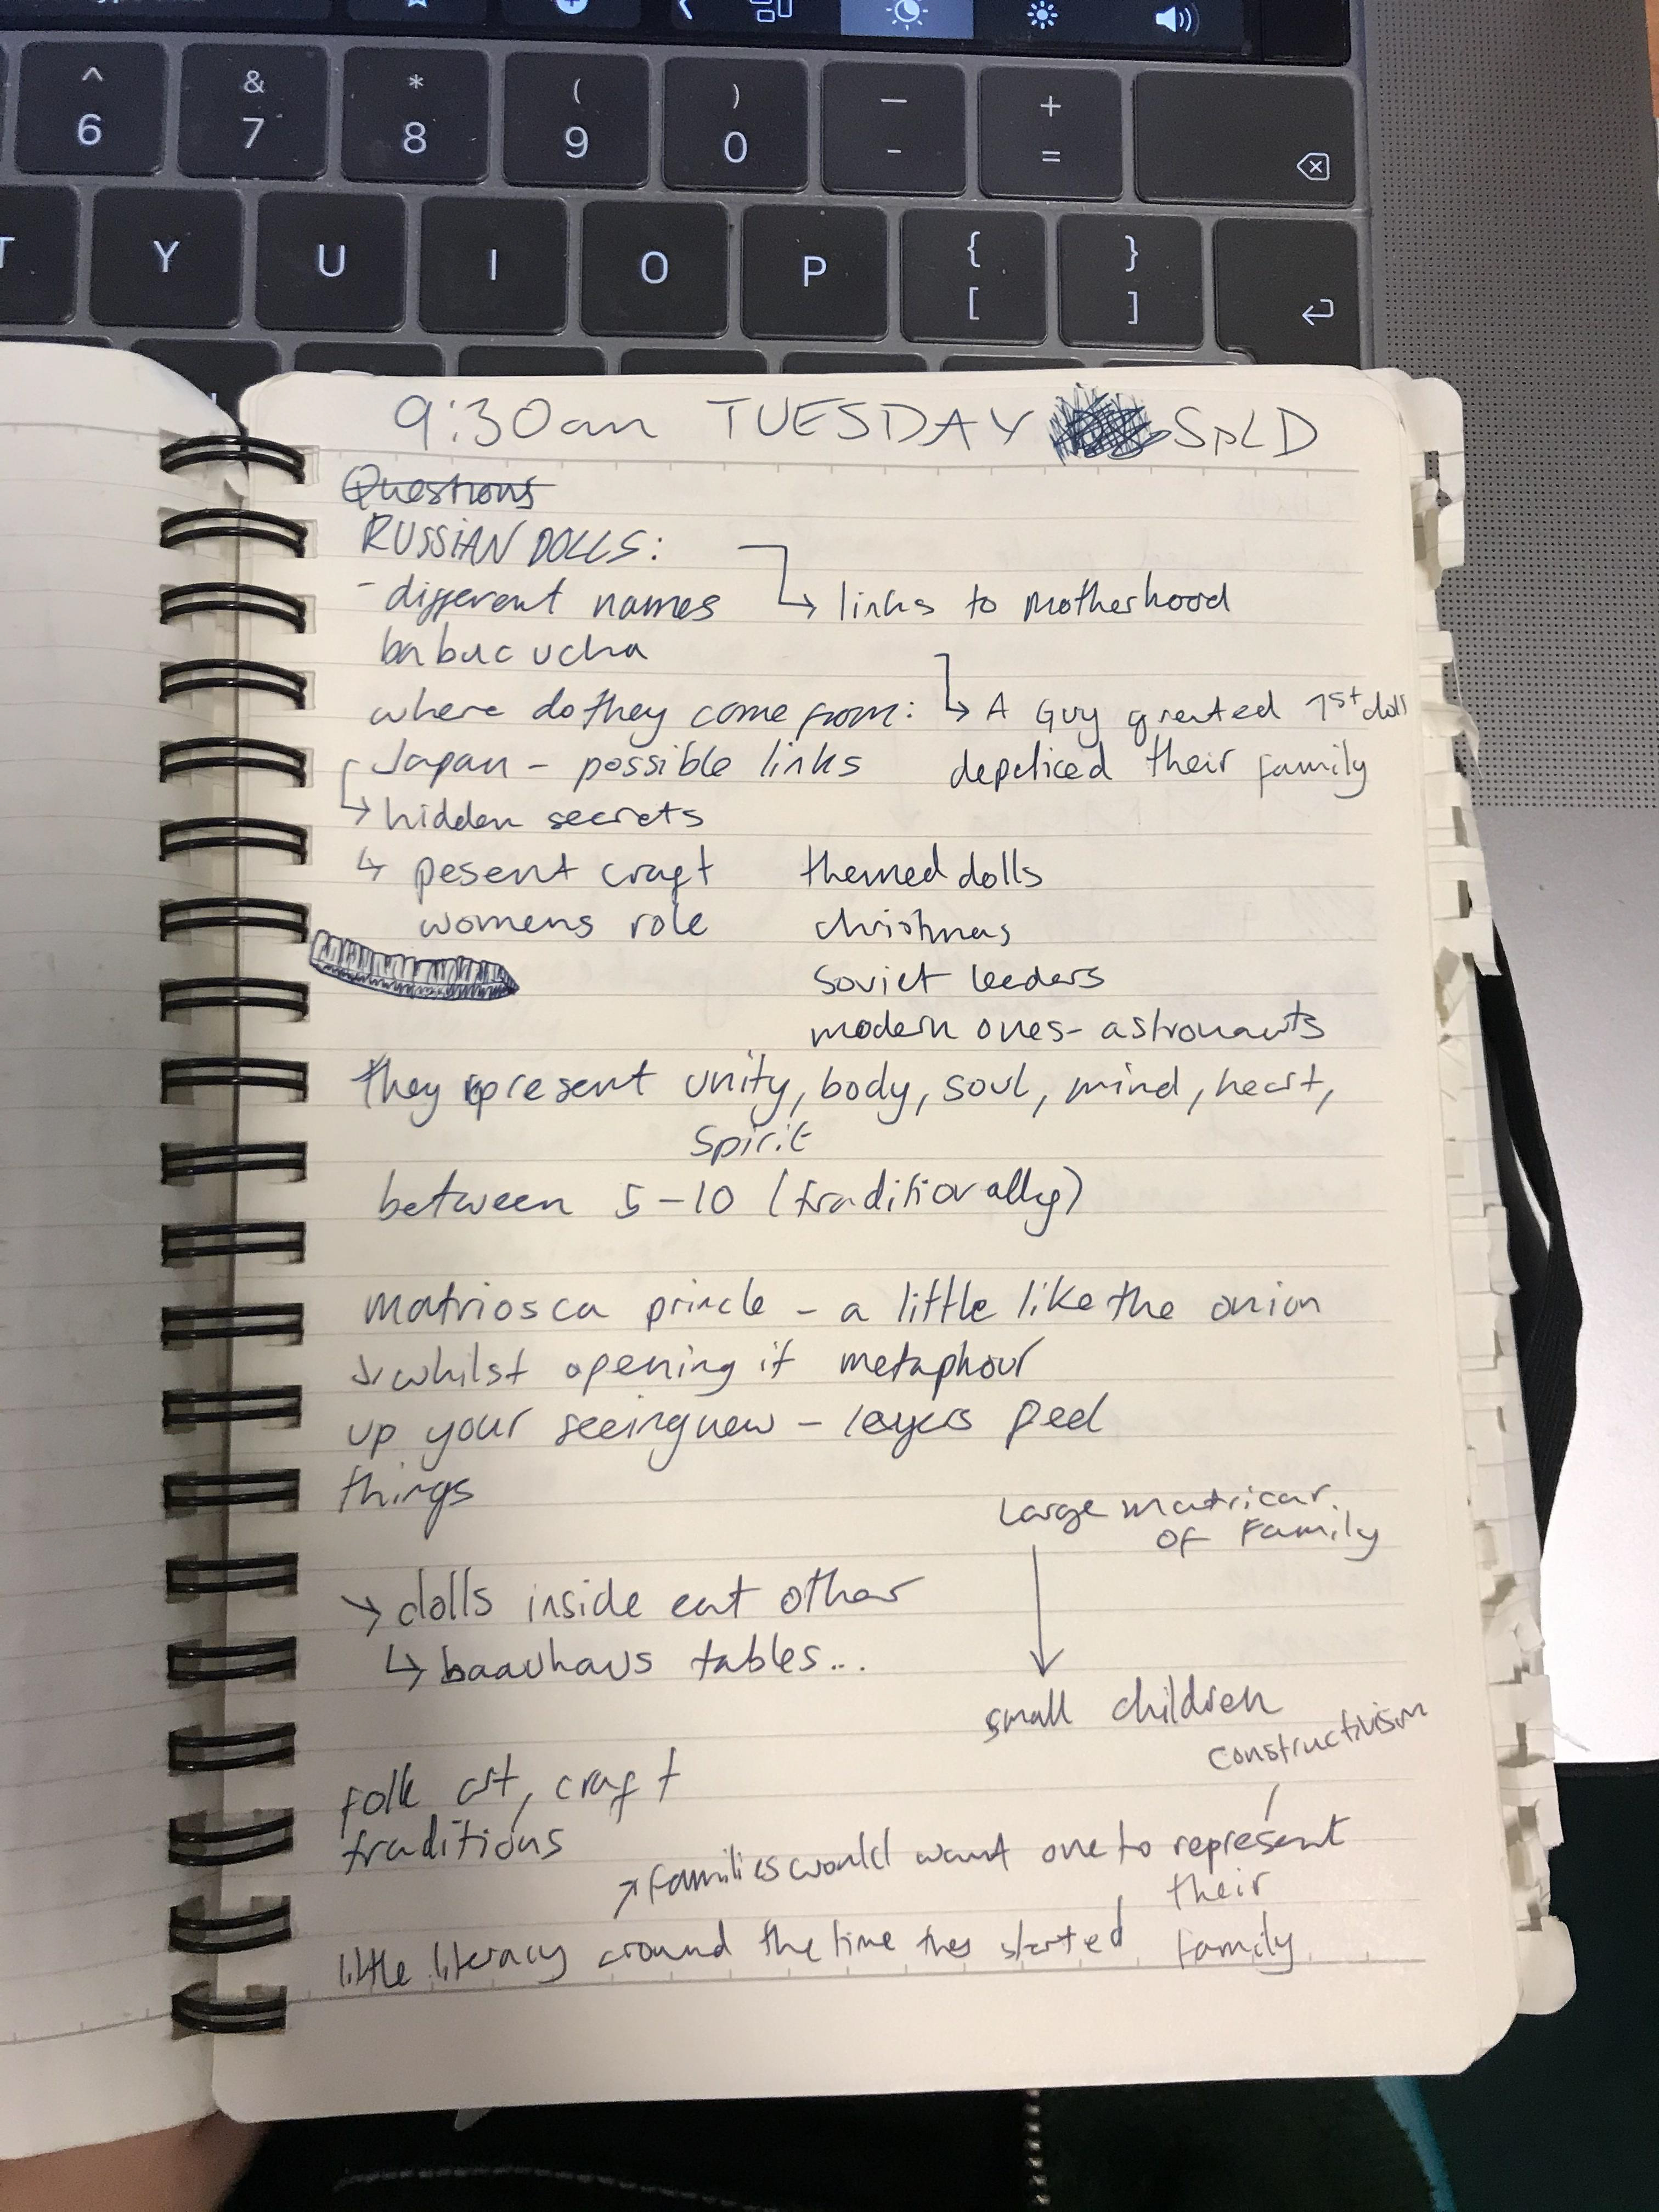 ^ & * ( ) — +
6 7 8 9 0 - =
T Y U I O P { }
[ ]
9:30am TUESDAY SpLD
Questions
RUSSIAN DOLLS:
- different names ↳ links to motherhood
babucucha
where do they come from: ↳ A Guy greated 1st doll
Japan - possible links depeticed their family
↳ hidden secrets
↳ pesent craft themed dolls
womens role christmas
Soviet leeders
modern ones - astronauts
they represent unity, body, soul, mind, heart,
Spirit
between 5-10 (traditionally)
matriosca princle - a little like the onion
↳ whilst opening it metaphour
up your seeing new - layers peel
things
Large matricar.
of Family
→ dolls inside eat other
↳ baauhaus tables...
small children
constructivism
folk art, craft
traditions
↗ families would want one to represent
their
little literacy around the time they started family